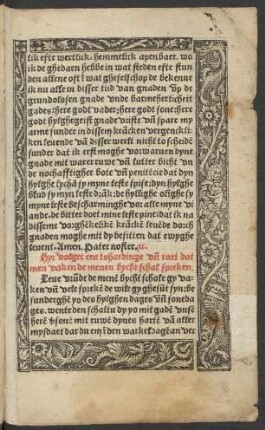 lik efte wertlick. hemmelick apenbaer. wo
ik de ghedaen hebbe in wat steden efte stun
den allene oft wat gheselschop de bekenne
ik nu alle in disser tijd van gnaden vp de
grundolosen gnade vnde barmeherticheit
gades: here godt vader: here godt sone: here
godt hylghegeist gnade vaiste vn̄ spare my
arme sunder in dissem krācken vergenckli-
ken leuende vā disser werlt nicht to scheidē
sunder dat ik erst moghe vorwaruen dyne
gnade mit warer ruwe vn̄ lutter bicht vn̄
de nochafftighet bote vn̄ penitēcie dat dyn
hylghe lycha sy myne leste spise: dyn hylghe
blud sy myn leste drāk: de hyllighe olighe sy
myne leste bescharminghe vor alle myne vi
ande. de bitter doet mine leste pine: dat ik na
disseme vorghenckliken krācken leuēde doch
gnaden moghe mit dy besitten dat ewyghe
leuent. Amen. Pater noster. ꝛc.
Hyr volget ene tohardinge vn̄ rait dat
men vaken de menen bycht schal spreken.
Leue vrūde de menē bycht schole gy va-
ken vn̄ vele spreke de wile gy ghesūt syn: be
sunderghē yo des hylghen dages vn̄ sonede
ages. wente den schaltu dy yo mit gade vnse
herē vsonē mit ruwē dynes hartē vā aller
mysdaet dar du en bē den warkeldagē an ver